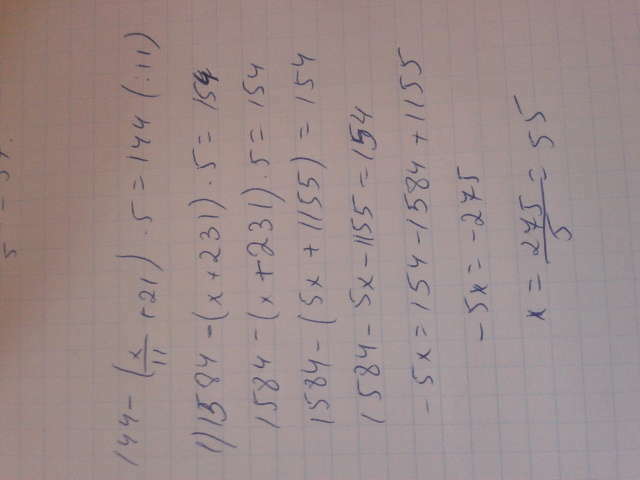 144 - (x/11 + 21) · 5 = 144 (:11)
1) 1584 - (x + 231) · 5 = 154
1584 - (x + 231) · 5 = 154
1584 - (5x + 1155) = 154
1584 - 5x - 1155 = 154
-5x = 154 - 1584 + 1155
-5x = -275
x = 275/5 = 55